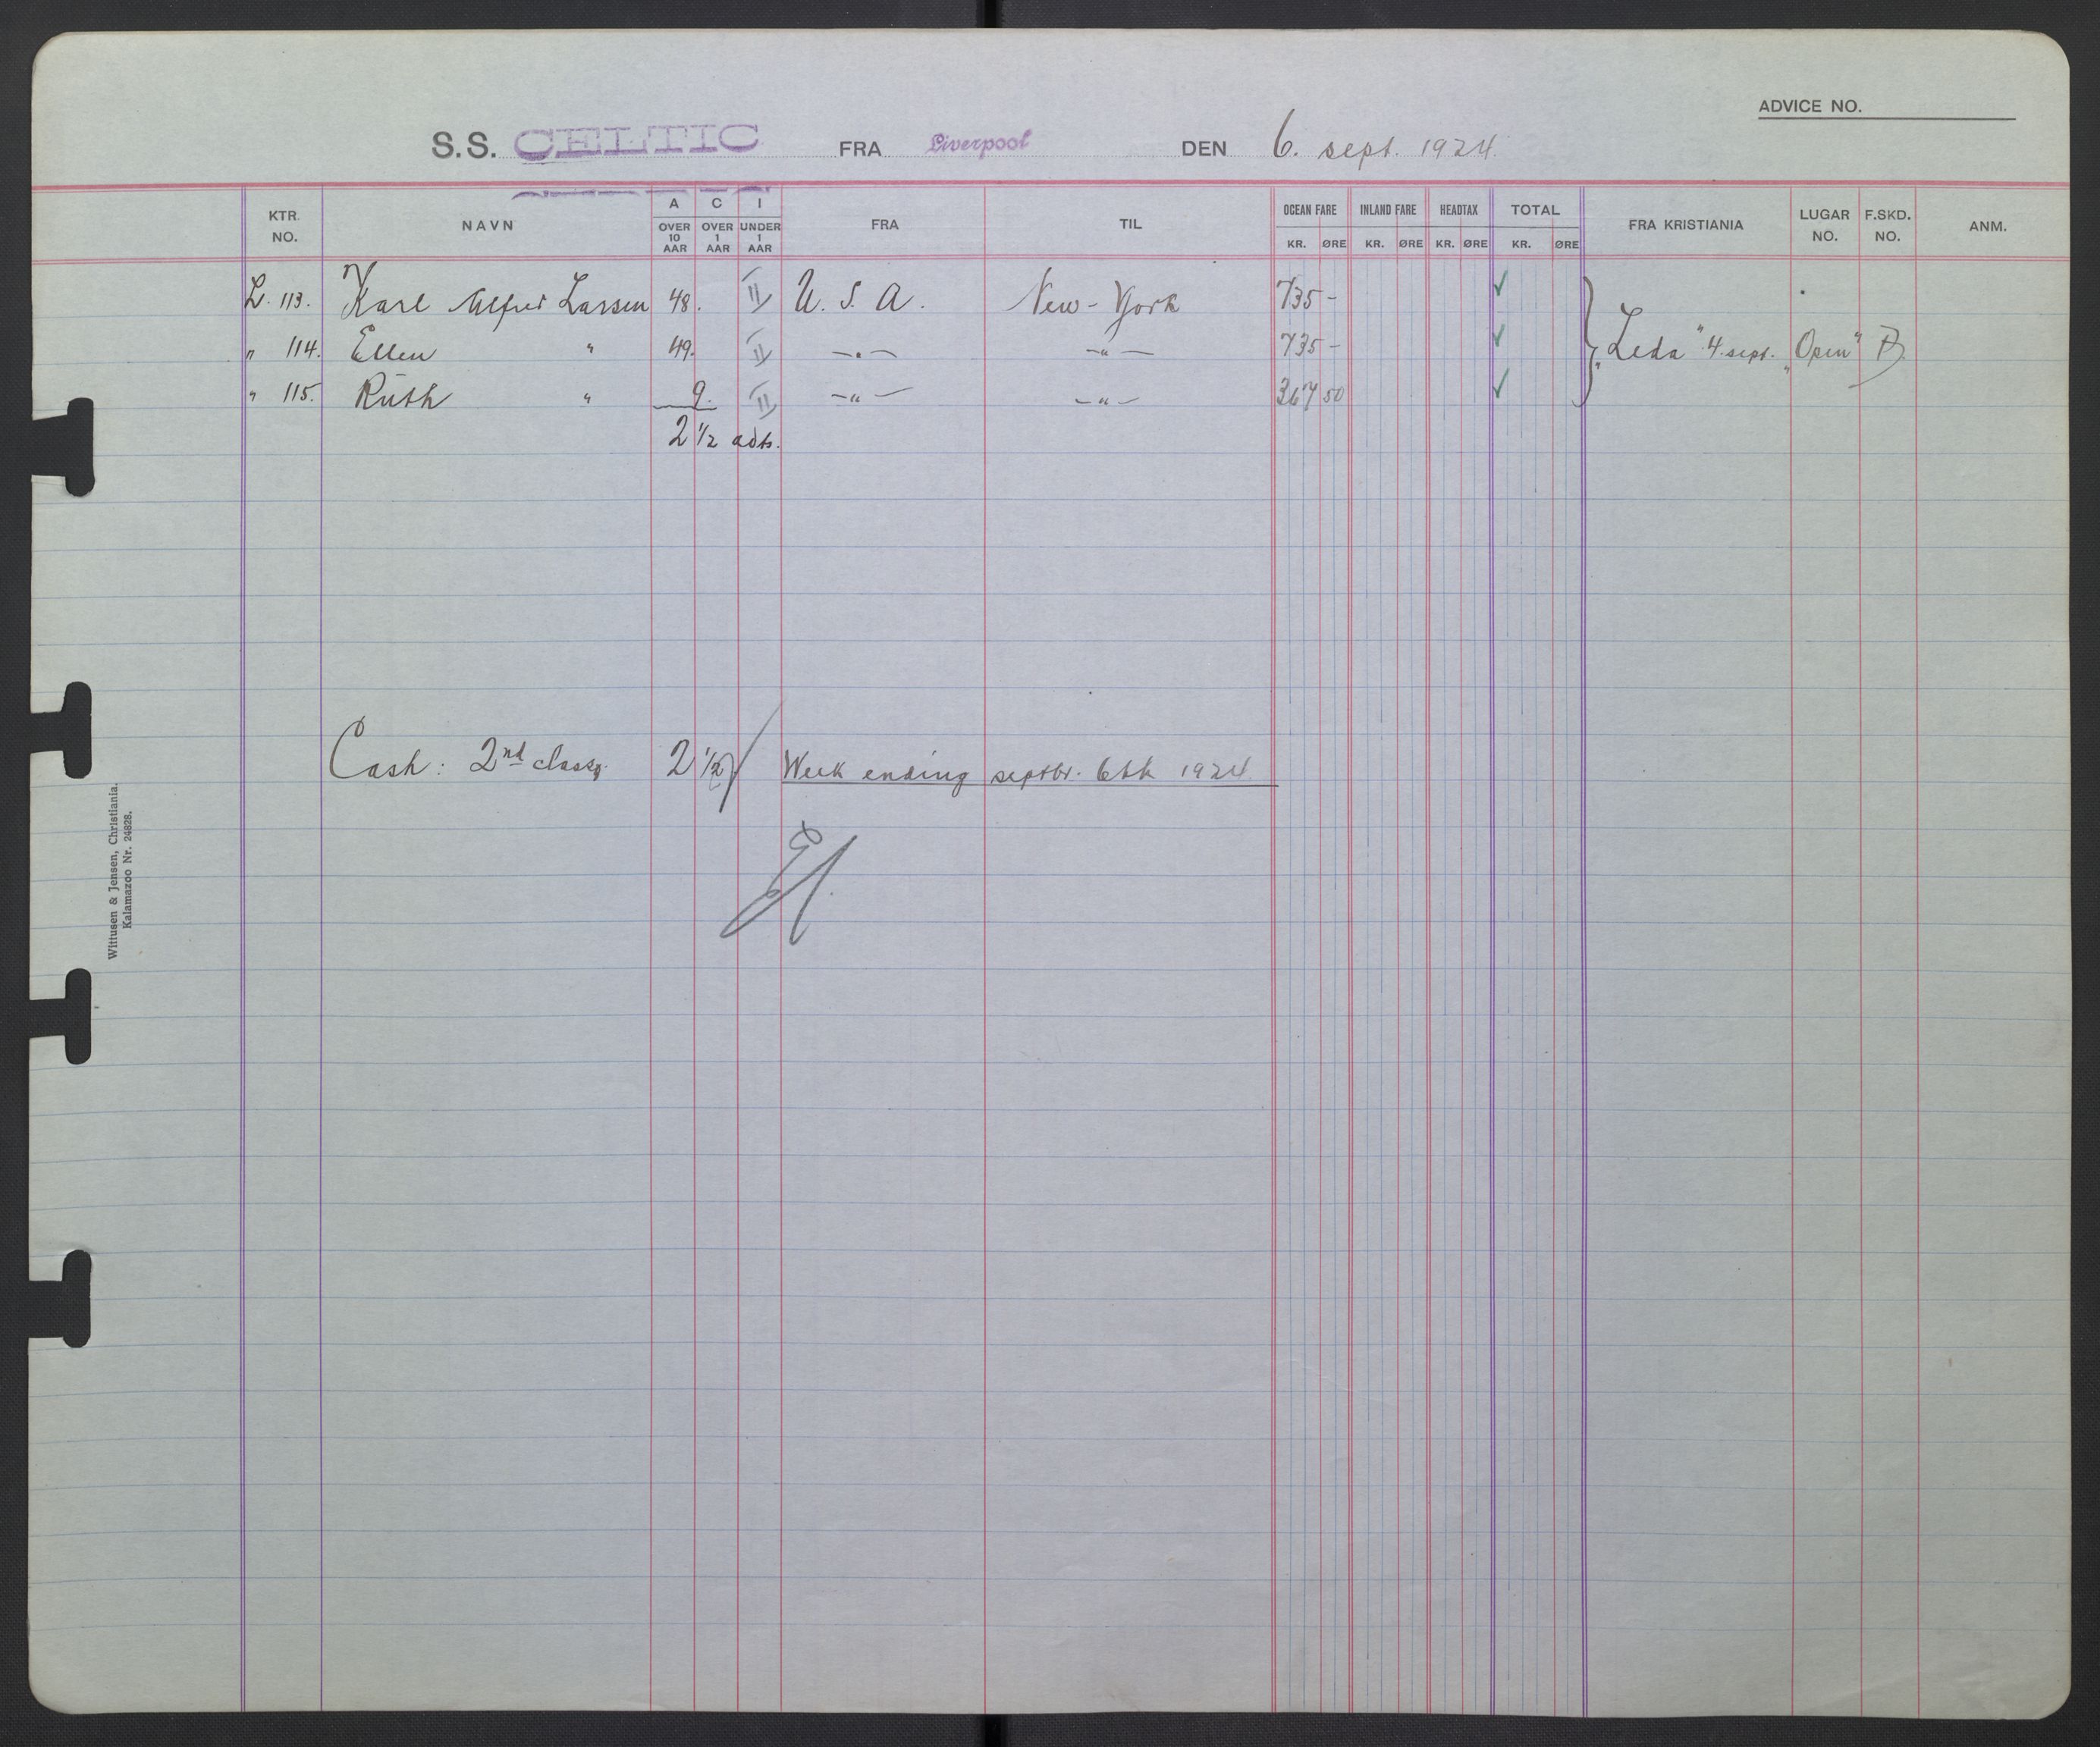 ADVICE NO.
S.S. CELTIC FRA Liverpool DEN 6. sept. 1924.
KTR. NO. NAVN A OVER 10 AAR C OVER 1 AAR I UNDER 1 AAR FRA TIL OCEAN FARE KR. ØRE INLAND FARE KR. ØRE HEADTAX KR. ØRE TOTAL KR. ØRE FRA KRISTIANIA LUGAR NO. F.SKD. NO. ANM.
L. 113. Karl Alfred Larsen 48. II U. S. A. New-York 735 - ✓
" 114. Ellen " 49. II —"— —"— 735 - ✓ "Leda" 4. sept. "Open"
" 115. Ruth " 9. II —"— —"— 367 50 ✓
2 1/2 adts.
Cash: 2nd class 2 1/2 Week ending septbr. 6th 1924.
Wittusen & Jensen, Christiania.
Kalamazoo Nr. 24828.